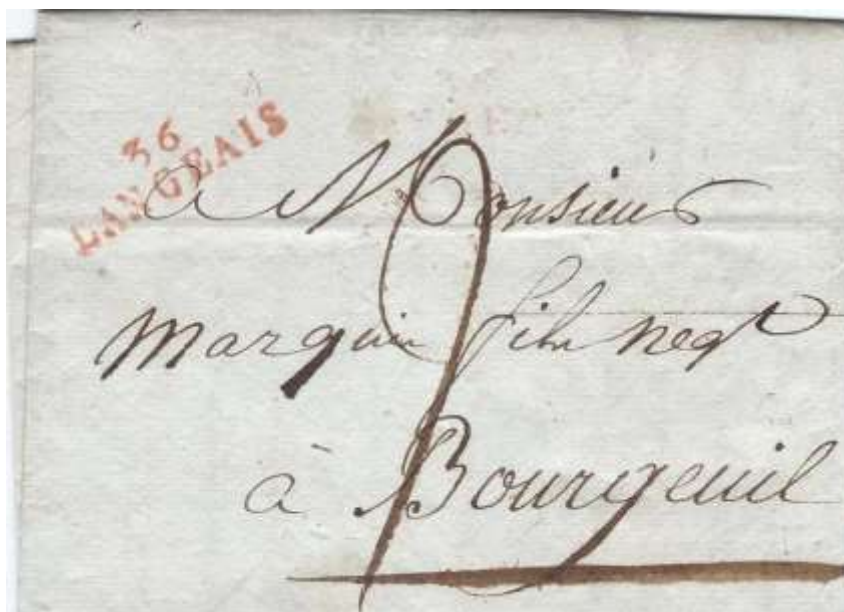 36
LANGEAIS
à Monsieur
Marquis fils negt
à Bourgeuil
2